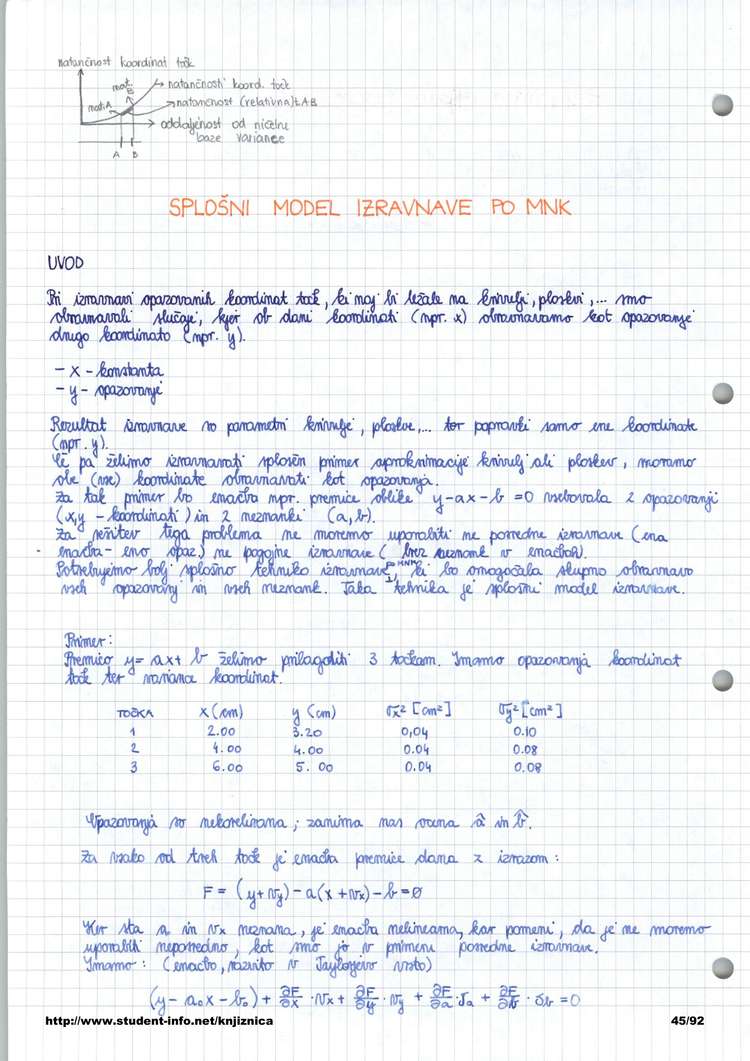 natančnost koordinat točk
nat. B
→ natančnosti koord. točk
nat. A
→ natančnost (relativna) t. A-B
→ oddaljenost od ničelne
baze variance
A B
SPLOŠNI MODEL IZRAVNAVE PO MNK
UVOD
Pri izravnavi opazovanih koordinat točk, ki naj bi ležale na krivulji, ploskvi,... smo
obravnavali slučaje, kjer ob dani koordinati (npr. x) obravnavamo kot opazovanje
drugo koordinato (npr. y).
- x - konstanta
- y - opazovanje
Rezultat izravnave so parametri krivulje, ploskve,... ter popravki samo ene koordinate
(npr. y).
Če pa želimo izravnavati splošen primer aproksimacije krivulj ali ploskev, moramo
obe (vse) koordinate obravnavati kot opazovanja.
Za tak primer bo enačba npr. premice oblike y-ax-b=0 vsebovala 2 opazovanji
(x,y - koordinati) in 2 neznanki (a,b).
Za rešitev tega problema ne moremo uporabiti ne posredne izravnave (ena
enačba - eno opaz.) ne pogojne izravnave (brez neznank v enačbah).
Potrebujemo bolj splošno tehniko izravnave po MNK, ki bo omogočala skupno obravnavo
vseh opazovanj in vseh neznank. Taka tehnika je splošni model izravnave.
Primer:
Premico y = ax + b želimo prilagoditi 3 točkam. Imamo opazovanja koordinat
točk ter varianca koordinat.
TOČKA x (cm) y (cm) σx² [cm²] σy² [cm²]
1 2.00 3.20 0,04 0.10
2 4.00 4.00 0.04 0.08
3 6.00 5.00 0.04 0.08
Opazovanja so nekorelirana; zanima nas ocena â in b̂.
Za vsako od treh točk je enačba premice dana z izrazom:
F = (y+vy) - a(x+vx) - b = 0
Ker sta a in vx neznana, je enačba nelinearna, kar pomeni, da je ne moremo
uporabiti neposredno, kot smo jo v primeru posredne izravnave.
Imamo: (enačbo, razvito v Taylorjevo vrsto)
(y - a₀x - b₀) + ∂F/∂x · vx + ∂F/∂y · vy + ∂F/∂a · δa + ∂F/∂b · δb = 0
http://www.student-info.net/knjiznica 45/92